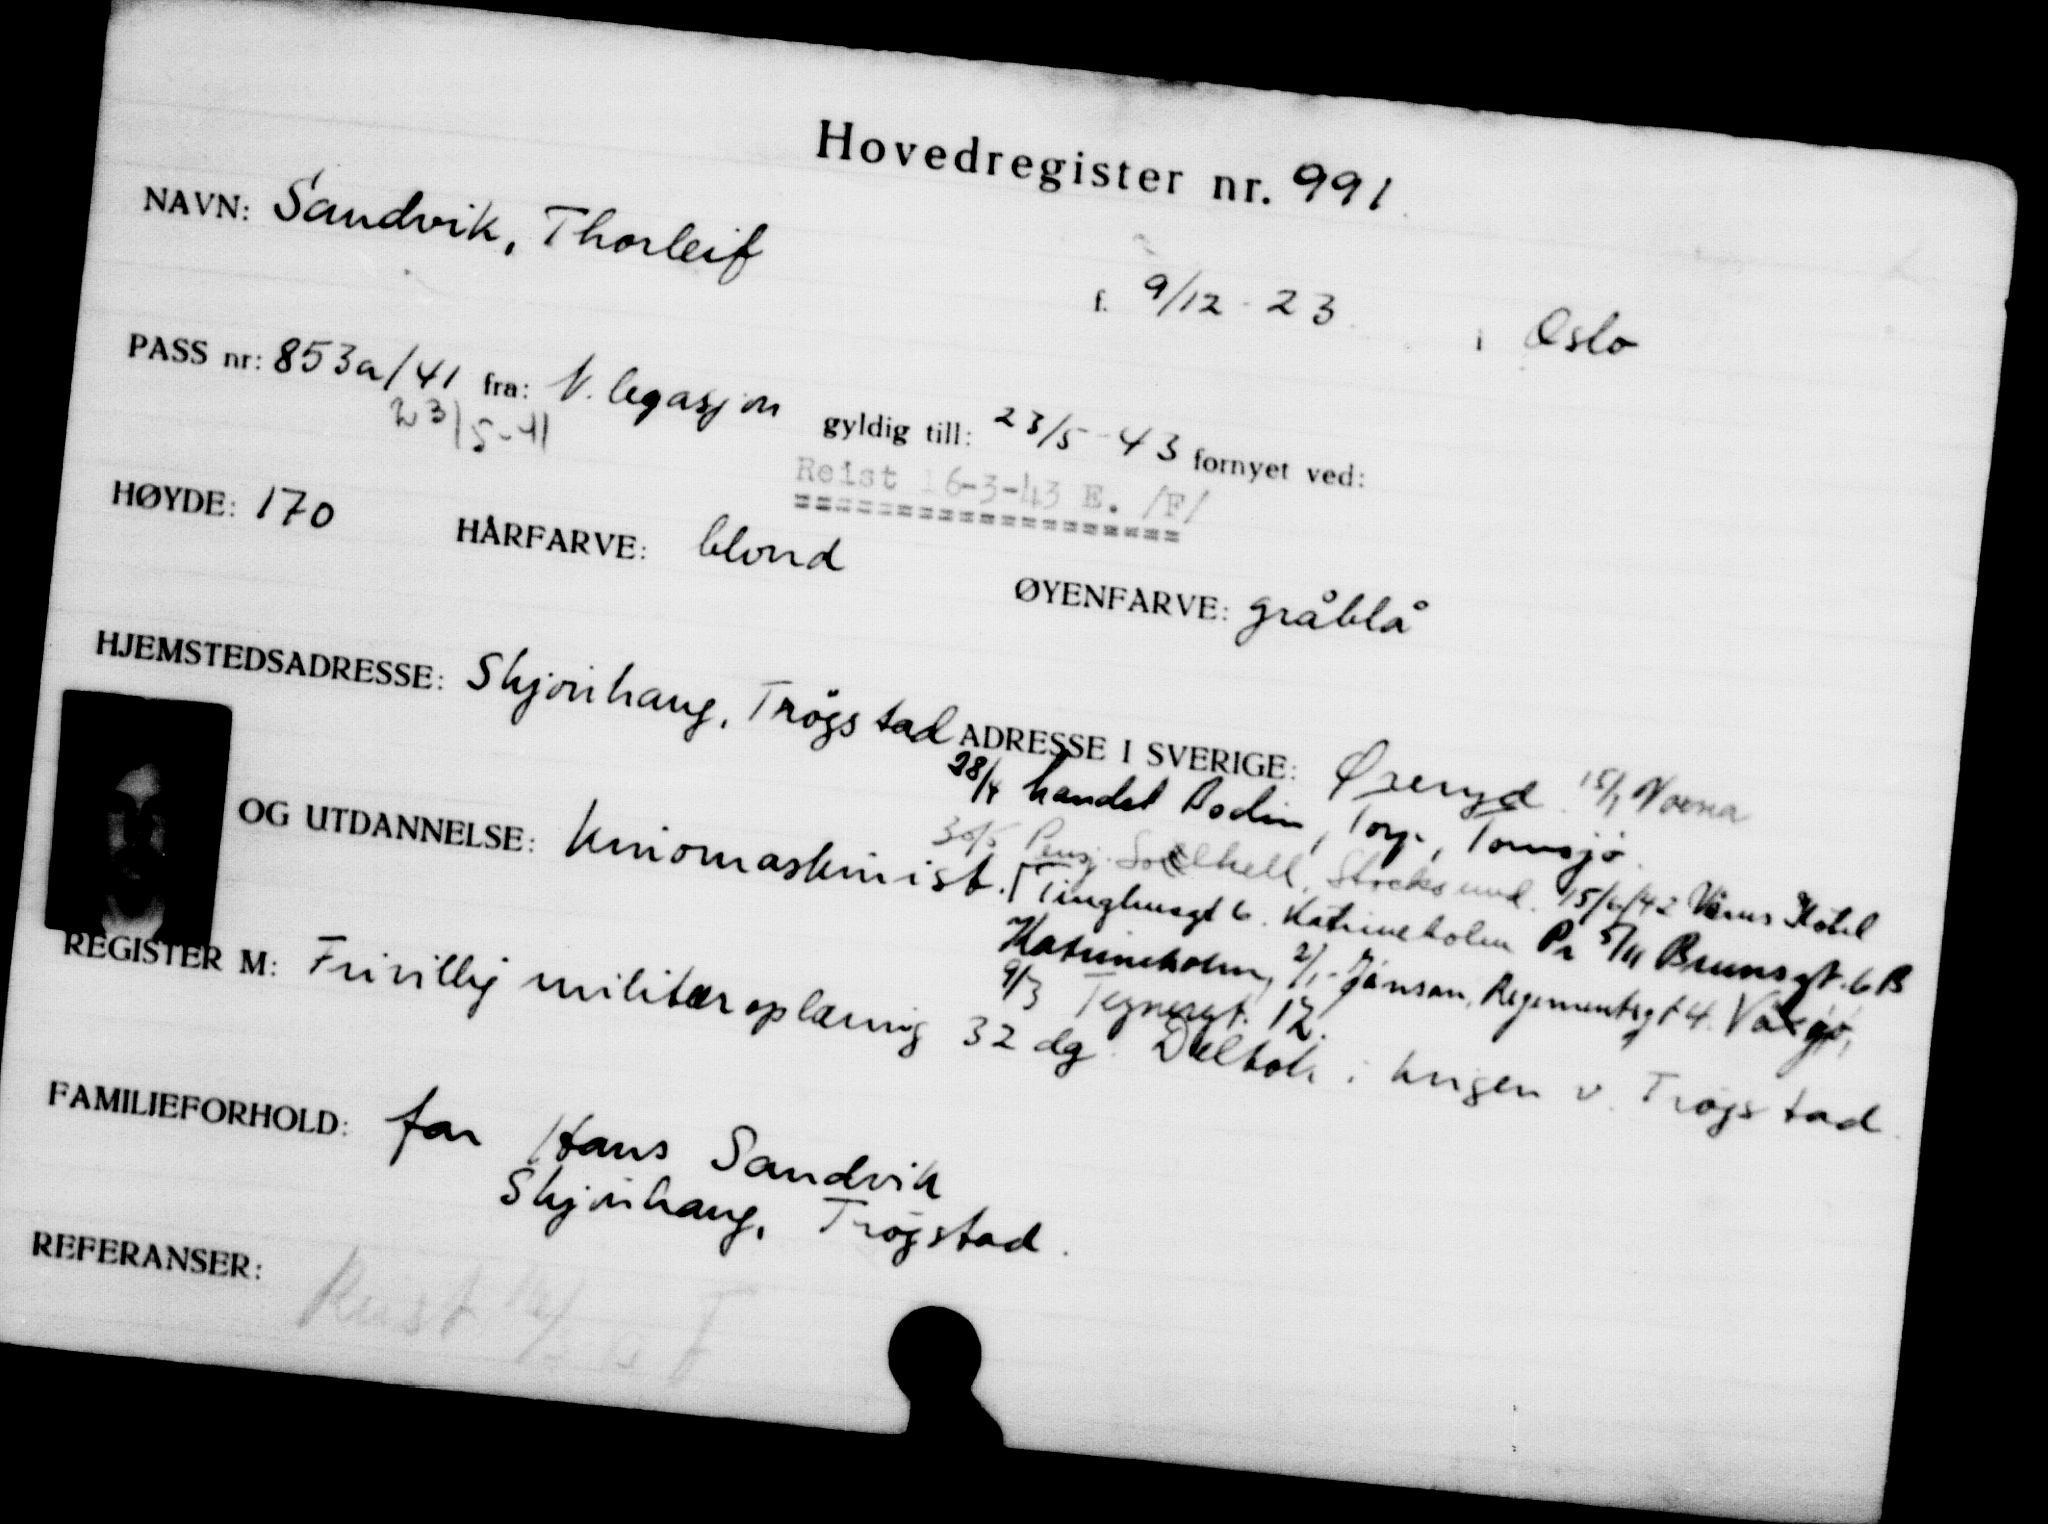 Hovedregister nr. 991.
NAVN: Sandvik, Thorleif
f. 9/12-23. i Oslo
PASS nr: 853a/41 fra: N. legasjon gyldig till: 23/5-43 fornyet ved:
23/5-41
Reist 16-3-43 E. /F/
HØYDE: 170 HÅRFARVE: blond ØYENFARVE: gråblå
HJEMSTEDSADRESSE: Skjönhaug, Trögstad ADRESSE I SVERIGE: Øreryd 15/1 Norna
28/4 Bodin, Torp, Tomsjö.
OG UTDANNELSE: kinomaskinist.
30/5 Pensj. Solhell, Stocksund. 15/6/42 Hotel
Tinghusgt 6. Katrineholm Pr 5/11 Brunsgt. 6B
Katrineholm, 2/1- Jánson, Regementsgt 4. Växjö,
9/3 Tegnergt. 12.
REGISTER M: Frivillig militæroplæring 32 dg. Deltok i krigen v. Trögstad.
FAMILIEFORHOLD: far Hans Sandvik
Skjönhaug, Trögstad.
REFERANSER: